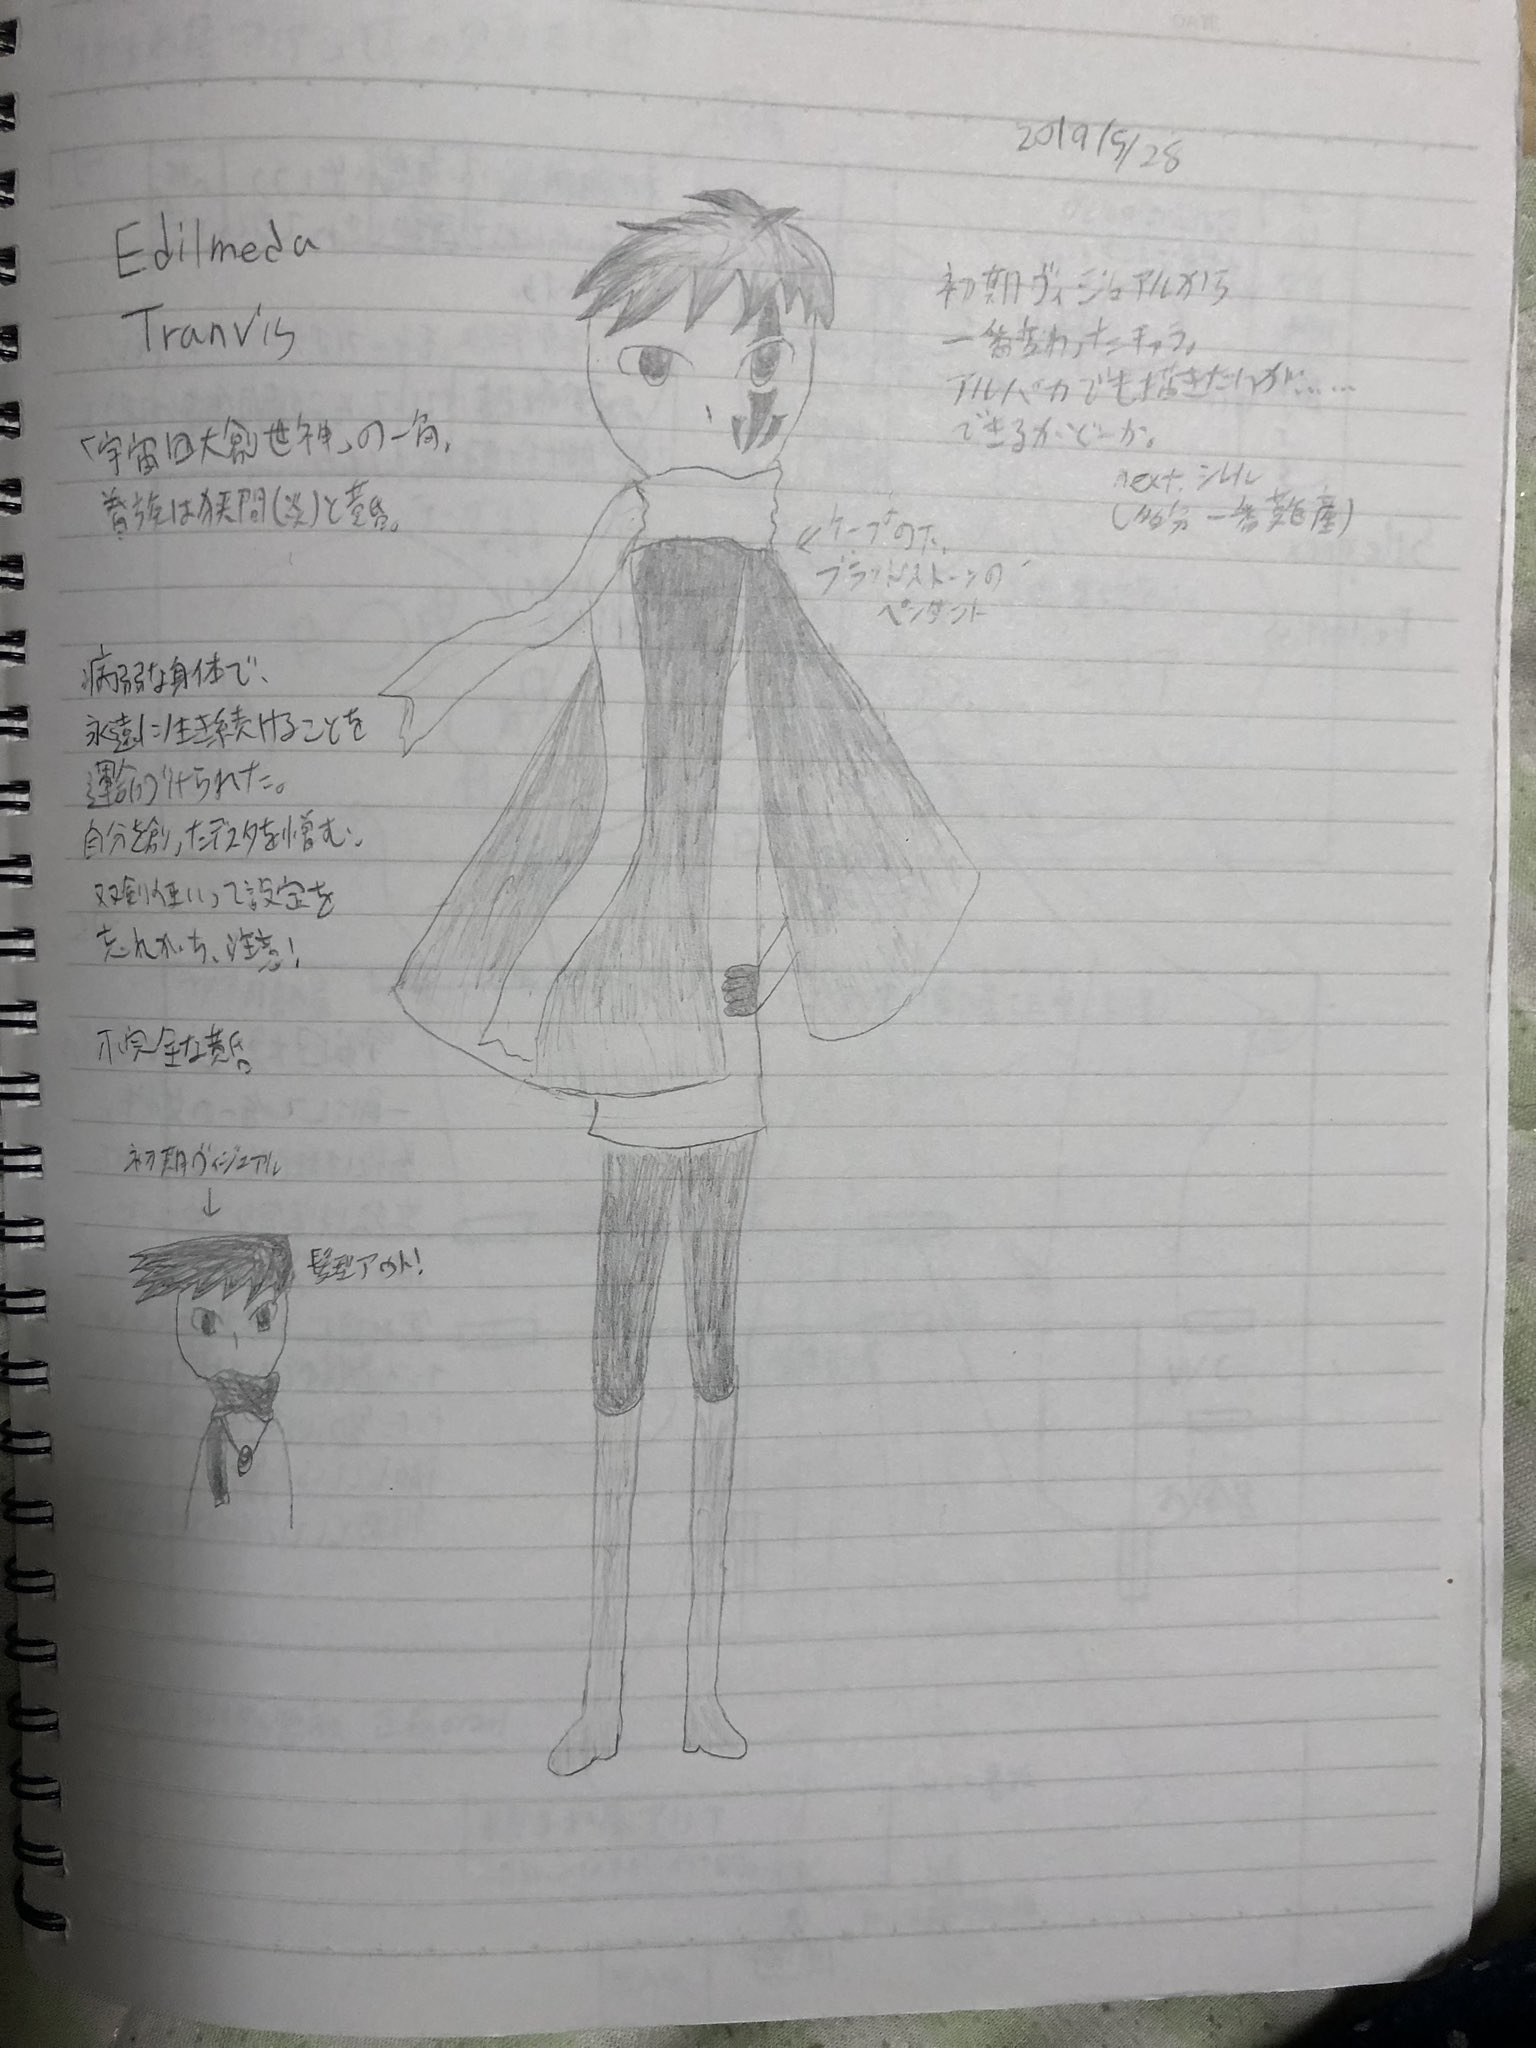 2019/5/28
Edilmeda
Tranvis
「宇宙四大創世神」の一角。
眷族は狭間(炎)と黄昏。
病弱な身体で、
永遠に生き続けることを
運命づけられた。
自分を創ったデスタを憎む。
双剣使いって設定を
忘れがち、注意!
不完全な黄昏。
初期ヴィジュアル
↓
髪型アウト!
初期ヴィジュアルから
一番変わったキャラ。
アルパカでも描きたいが……
できるかどーか。
next. シルル
(多分一番難産)
←ケープの下、
ブラッドストーンの
ペンダント